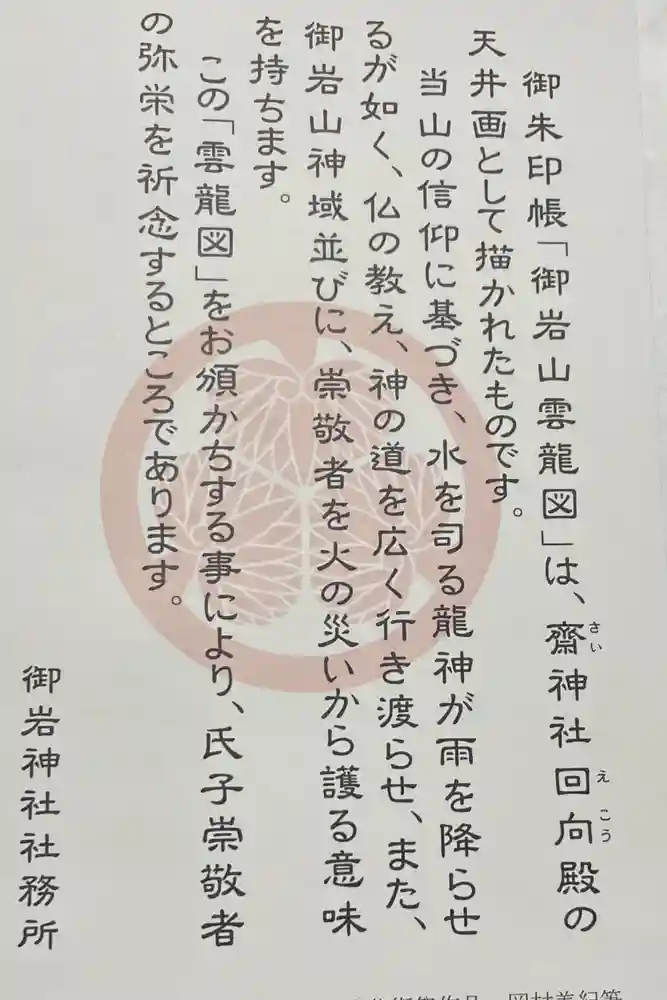 御朱印帳「御岩山雲龍図」は、齋神社回向殿の
さい
えこう
天井画として描かれたものです。
当山の信仰に基づき、水を司る龍神が雨を降らせ
るが如く、仏の教え、神の道を広く行き渡らせ、また、
御岩山神域並びに、崇敬者を火の災いから護る意味
を持ちます。
この「雲龍図」をお頒かちする事により、氏子崇敬者
の弥栄を祈念するところであります。
御岩神社社務所